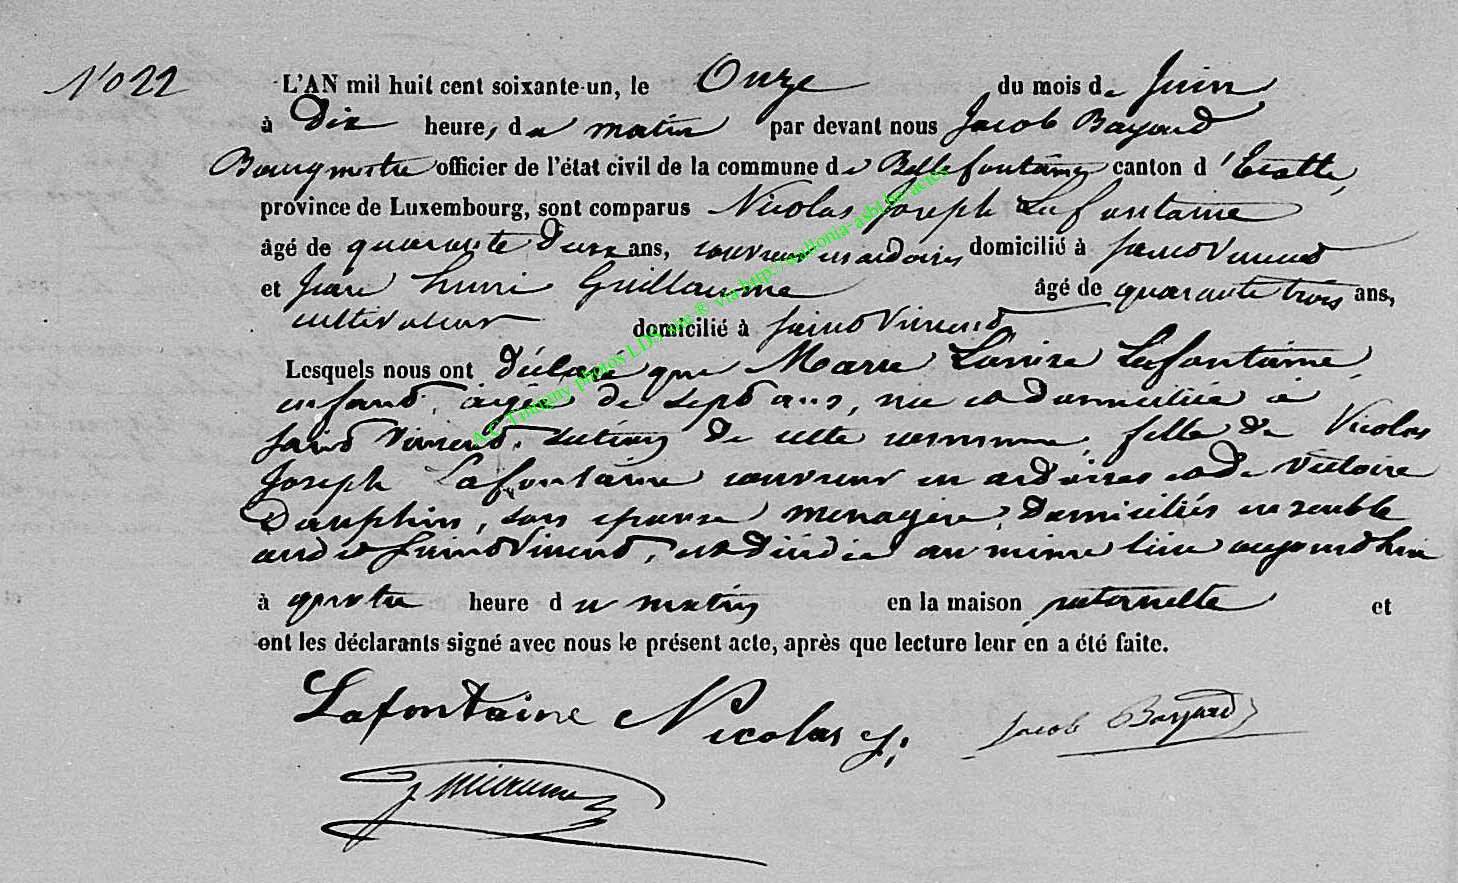 No 22
L'AN mil huit cent soixante-un, le Onze du mois de Juin
à Dix heures, du matin par devant nous Jacob Bayard
Bourgmestre officier de l'état civil de la commune de Bellefontaine canton d'Etalle,
province de Luxembourg, sont comparus Nicolas Joseph Lafontaine
âgé de quarante deux ans, couvreur en ardoises domicilié à Saint Vincent
et Jean Henri Guillaume âgé de quarante trois ans,
cultivateur domicilié à Saint Vincent
Lesquels nous ont déclaré que Marie Louise Lafontaine,
enfant, âgée de sept ans, née et domiciliée à
Saint Vincent, section de cette commune, fille de Nicolas
Joseph Lafontaine couvreur en ardoises et de Victoire
Dauphin, son épouse ménagère, domiciliés ensemble
audit Saint Vincent, est décédée au même lieu aujourd'hui
à quatre heure du matin en la maison paternelle et
ont les déclarants signé avec nous le présent acte, après que lecture leur en a été faite.
Lafontaine Nicolas J. Jacob Bayard
A.C. Tintigny photos LDS via http://wallonia-asbl.be/actes